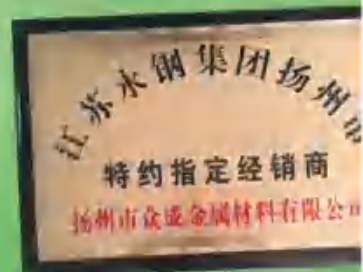 江苏永钢集团扬州市
特约指定经销商
扬州市众成金属材料有限公司